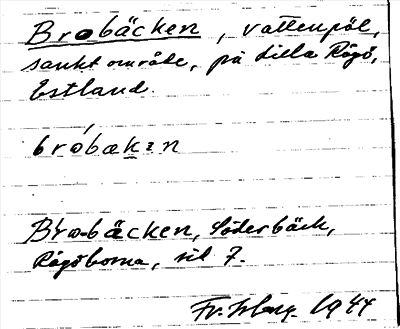 Brobäcken, vattenpöl,
sankt område, på Lilla Rågö,
Estland.
bróbakən
Bro-bäcken, Söderbäck,
Rågöborna, sid 7.
1944